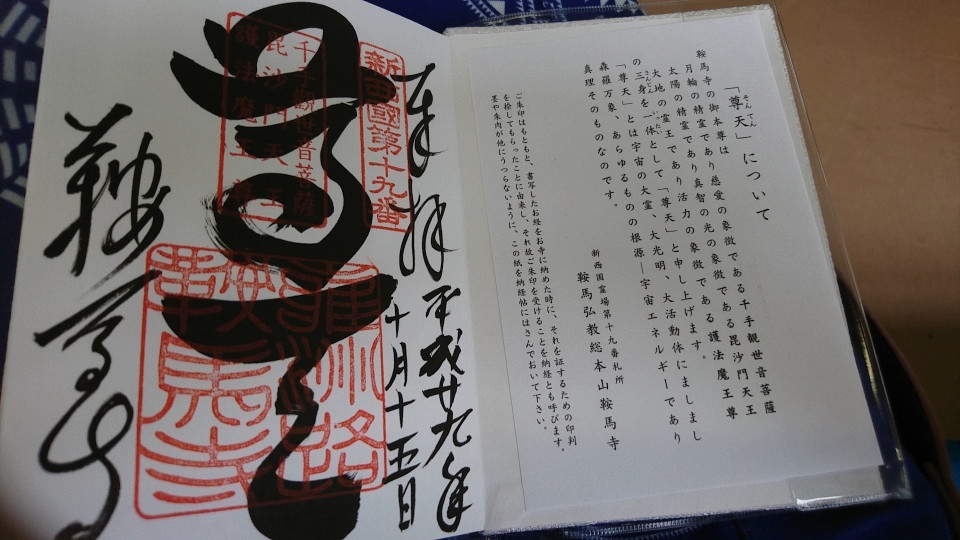 「尊天」について
鞍馬寺の御本尊は
月輪の精霊であり慈愛の象徴である千手観世音菩薩
太陽の精霊であり真智の光の象徴である毘沙門天王
大地の霊王であり活力の象徴である護法魔王尊
の三身を一体として「尊天」と申し上げます。
「尊天」とは宇宙の大霊、大光明、大活動体にましまし
森羅万象、あらゆるものの根源―宇宙エネルギーであり
真理そのものなのです。
新西国霊場第十九番札所
鞍馬弘教総本山鞍馬寺
ご朱印はもともと、書写したお経をお寺に納めた時に、それを証するための印判
を捺してもらったことに由来し、それ故ご朱印を受けることを納経とも呼びます。
墨や朱肉が他にうつらないように、この紙を納経帖にはさんでおいて下さい。
奉拝 平成廿九年
十月十五日
新西國第十九番
千手觀世音菩薩
毘沙門天王
護法魔王尊
尊天
雍州路
鞍馬寺
鞍馬寺